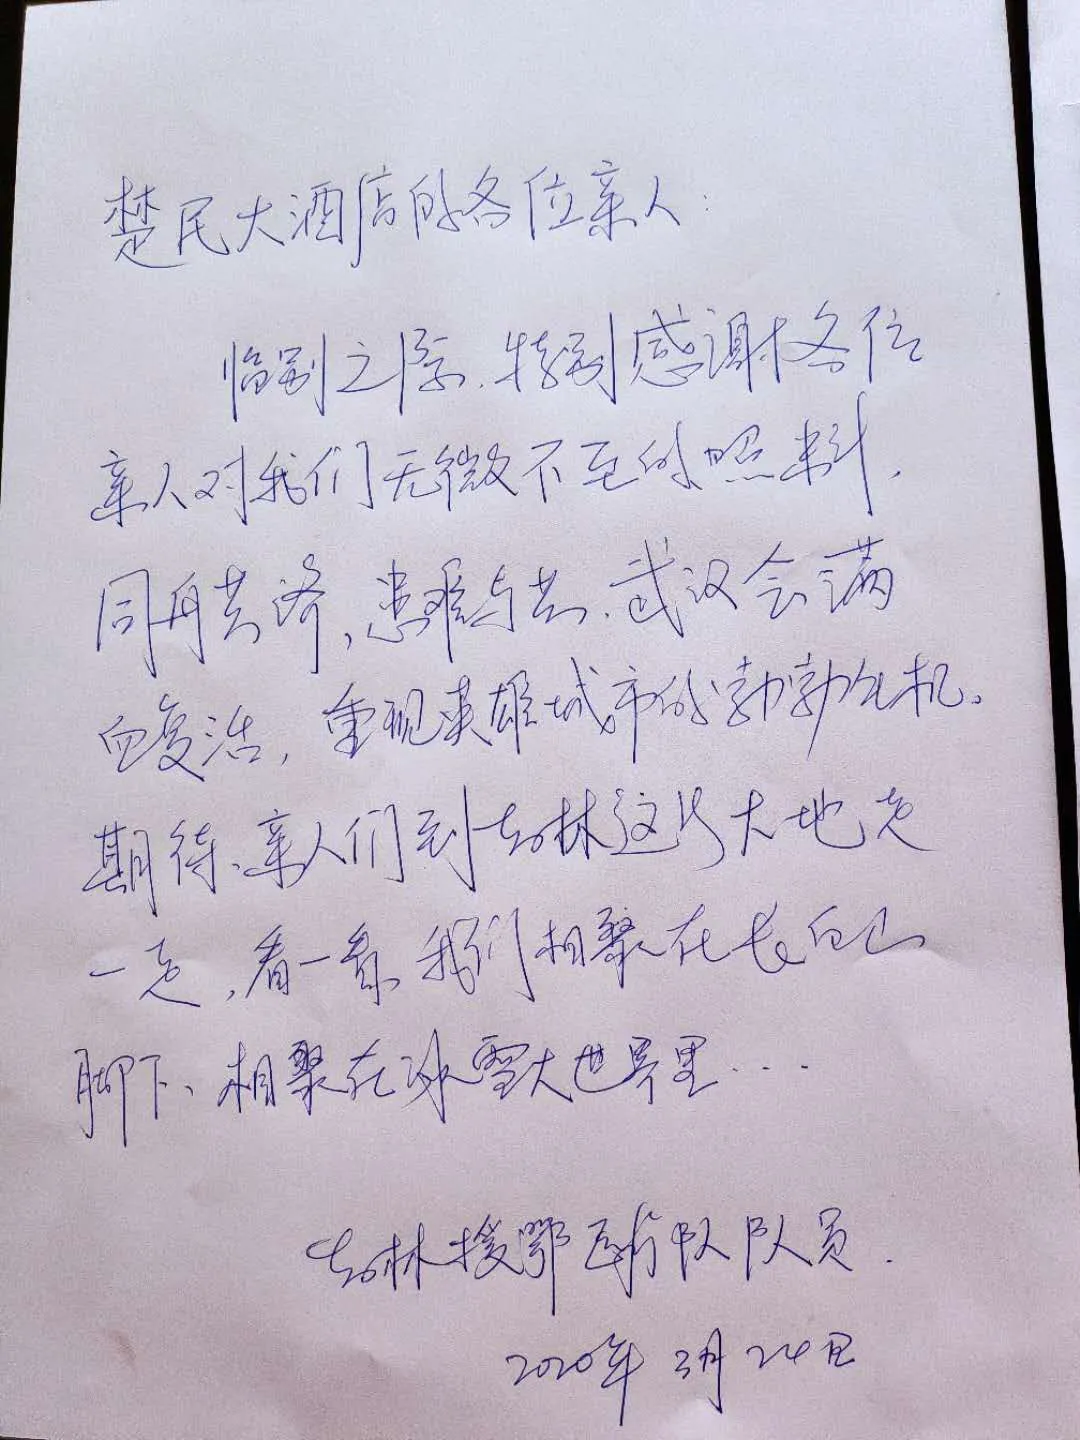 楚民大酒店的各位亲人:
临别之际,特别感谢各位
亲人对我们无微不至的照料,
同舟共济,患难与共,武汉会满
血复活,重现英雄城市的勃勃生机。
期待亲人们到吉林这片大地走
一走,看一看,我们相聚在长白山
脚下、相聚在冰雪大世界里....
吉林援鄂医疗队队员.
2020年3月24日